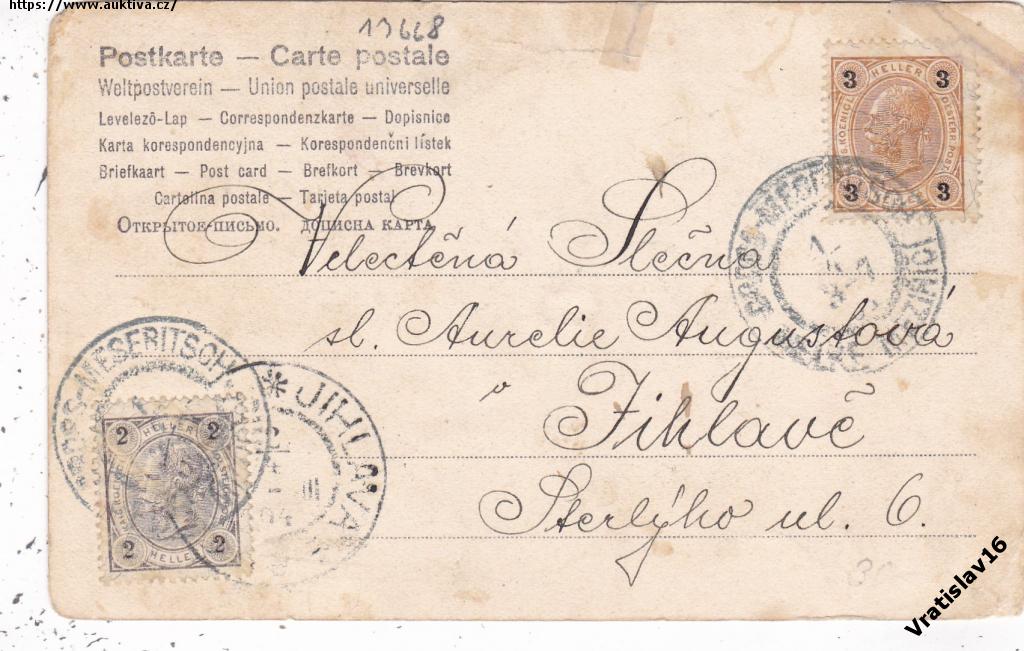 https://www.auktiva.cz/
13668
Postkarte — Carte postale
Weltpostverein — Union postale universelle
Levelező-Lap — Correspondenzkarte — Dopisnice
Karta korespondencyjna — Korespondenčni lístek
Briefkaart — Post card — Brefkort — Brevkort
Cartolina postale — Tarjeta postal
Открытое письмо. дописна карта
3 HELLER 3
3 3
Velectěná Slečna
sl. Aurelie Augustová
v Jihlavě
Šterlýho ul. 6.
GROSS-MESERITSCH
MEZIŘÍČÍ
GROSS-MESERITSCH
* JIHLAVA
2 HELLER 2
2 HELLER 2
Vratislav16